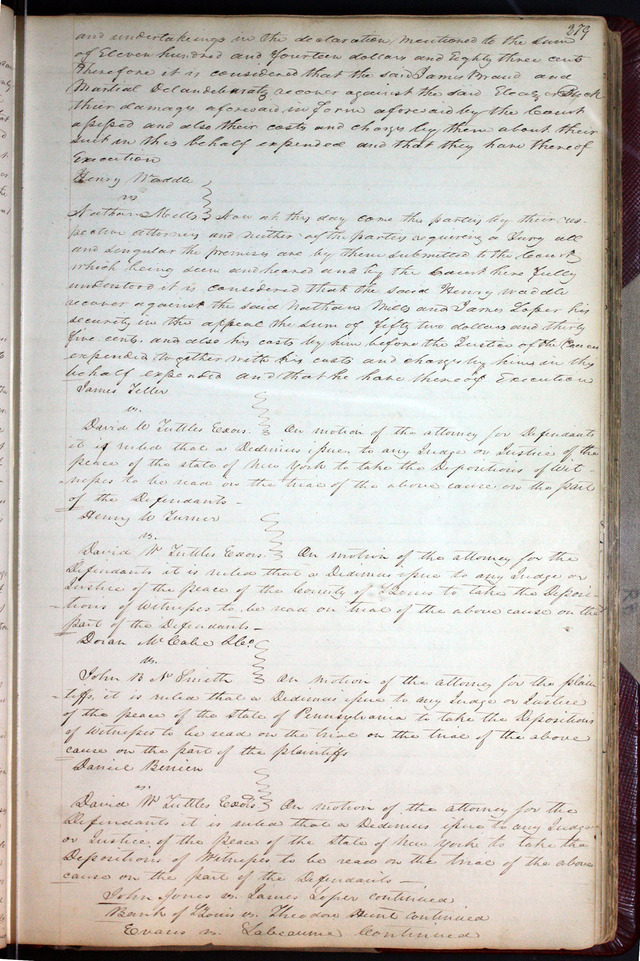 379
and undertakings in the declaration mentioned to the sum
of Eleven hundred and fourteen dollars and Eighty three cents
Therefore it is considered that the said James Braud and
Martial Delandebaraty recover against the said
their damages aforesaid in form aforesaid by the Court
assessed and also their costs and charges by them about their
suit in this behalf expended and that they have thereof
Execution
Henry Waddle
vs
Nathan Mills Now at this day come the parties by their res-
pective attornies and neither of the parties requiring a Jury all
and singular the premises are by them submitted to the Court
which being seen and heard and by the Court here fully
understood it is considered that the said Henry Waddle
recover against the said Nathan Mills and James Loper his
security in the appeal the sum of fifty two dollars and thirty
five cents and also his costs by him before the Justice of the Peace
expended together with his costs and charges by him in this
behalf expended and that he have thereof Execution
James Teller
vs.
David W Tuttles Exors. On motion of the attorney for Defendants
it is ruled that a Dedimus issue to any Judge or Justice of the
peace of the state of New York to take the Depositions of Wit-
nesses to be read on the trial of the above cause on the part
of the Defendants -
Henry W Turner
vs.
David W Tuttles Exors. On motion of the attorney for the
Defendants it is ruled that a Dedimus issue to any Judge or
Justice of the peace of the County of St Louis to take the Deposi-
tions of Witnesses to be read on trial of the above cause on the
part of the Defendants -
Doran McCabe & Co.
vs.
John B N Smith On motion of the attorney for the plain
tiffs it is ruled that a Dedimus issue to any Judge or Justice
of the peace of the State of Pennsylvania to take the Depositions
of Witnesses to be read on the trial on the trial of the above
cause on the part of the plaintiffs
Daniel Benien
vs.
David W Tuttles Exors On motion of the attorney for the
Defendants it is ruled that a Dedimus issue to any Judge
or Justice of the peace of the State of New York to take the
Depositions of Witnesses to be read on the trial of the above
cause on the part of the Defendants -
John Jones vs. James Loper continued
Bank of St Louis vs. Theodore Hunt Continued
Evans vs. Labeaume Continued